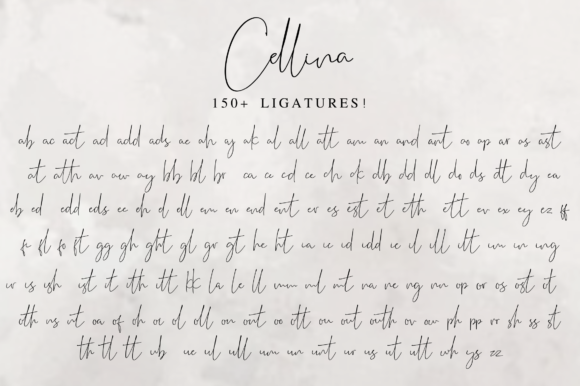 Cellina
150+ LIGATURES!
ab ac act ad add ads ae ah aj ak al all att am an and ant ao ap ar as ast
at ath av aw ay bb bl br ca cc cd ce ch ck db dd dl do ds dt dy ea
eb ed edd eds ee eh el ell em en end ent er es est et eth ett ev ex ey ez ff
fr fl fo ft gg gh ght gl gr gt he ht ia ic id idd ie il ill itt im in ing
ir is ish ist it ith itt kk la le ll mm nl nt na ne ng nn op or os ost ot
oth ns nt oa of oh oi ol oll on ont oo ott ou out outh ov ow ph pp rr sh ss st
th tl tt ub ue ul ull um un unt ur us ut utt wh ys zz